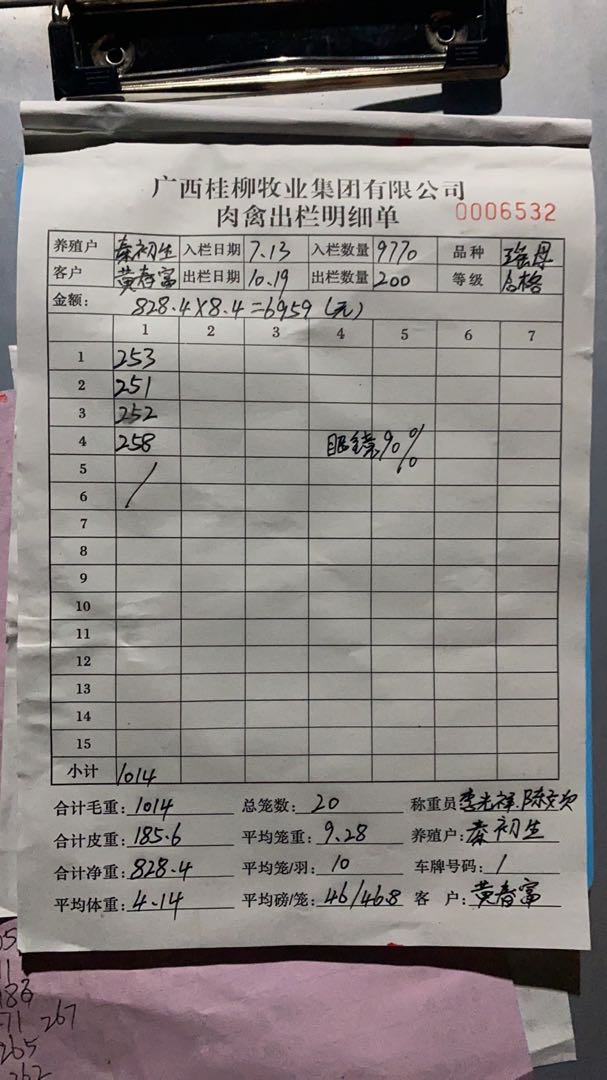 广西桂柳牧业集团有限公司
肉禽出栏明细单 0006532
养殖户 秦初生 入栏日期 7.13 入栏数量 9770 品种 瑶丹
客户 黄春富 出栏日期 10.19 出栏数量 200 等级 合格
金额: 828.4×8.4=6959(元)
1 2 3 4 5 6 7
1 253
2 251
3 252
4 258 眼镜90%
5 /
6
7
8
9
10
11
12
13
14
15
小计 1014
合计毛重: 1014 总笼数: 20 称重员 李光祥.陈
合计皮重: 185.6 平均笼重: 9.28 养殖户: 秦初生
合计净重: 828.4 平均笼/羽: 10 车牌号码: /
平均体重: 4.14 平均磅/笼: 46/46.8 客 户: 黄春富
71 267
265
262